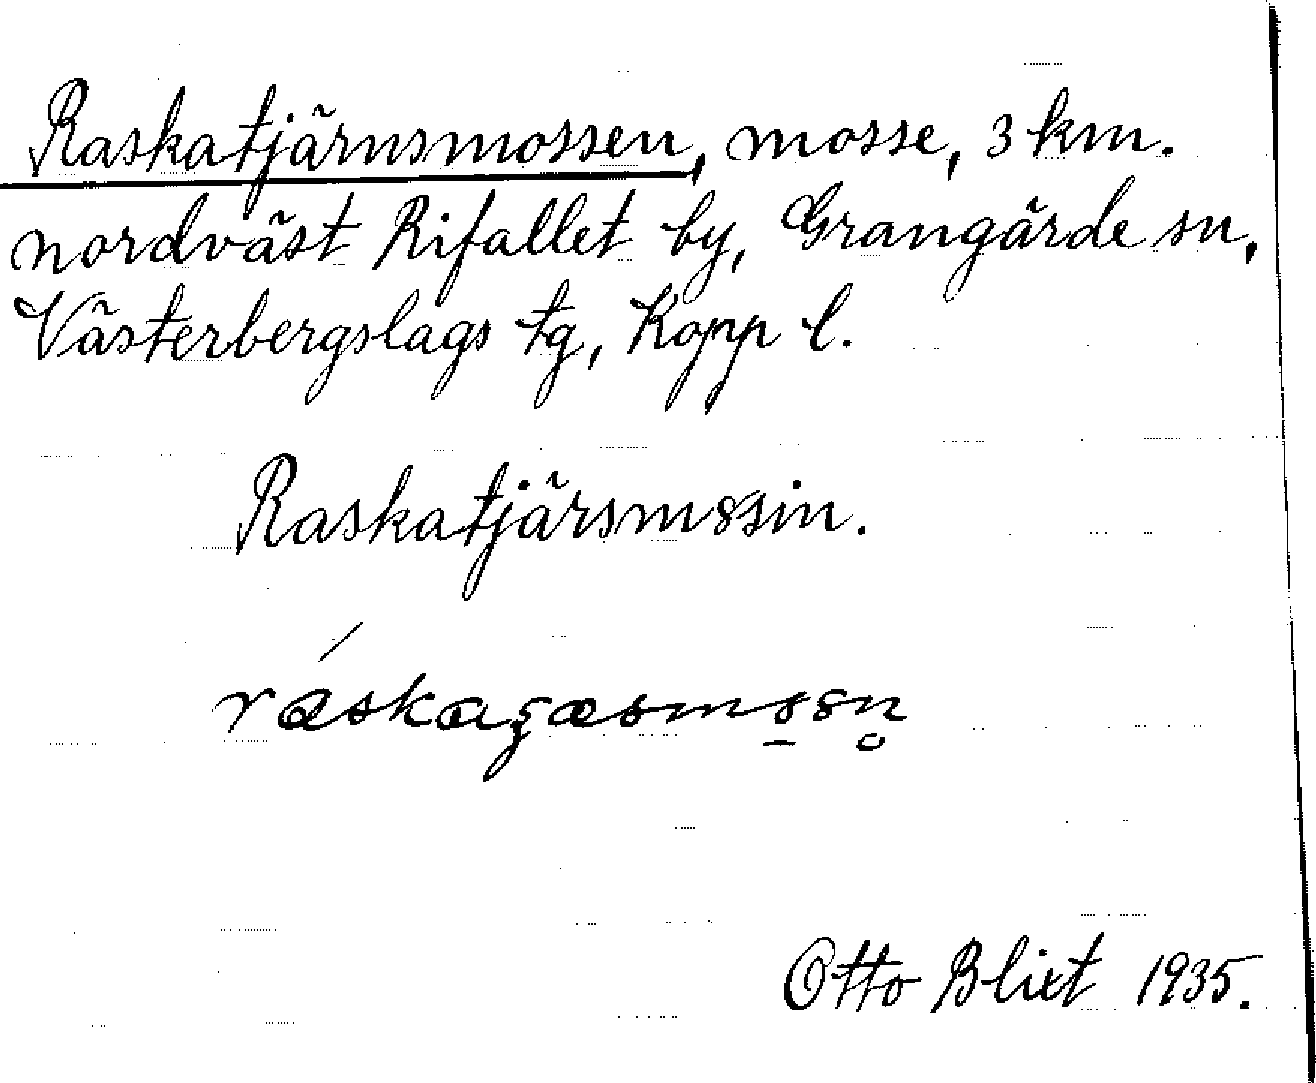 Raskatjärnsmossen, mosse, 3 km.
nordväst Rifallet by, Grangärde sn,
Västerbergslags tg, Kopp l.
Raskatjärsm8sin.
Otto Blixt 1935.